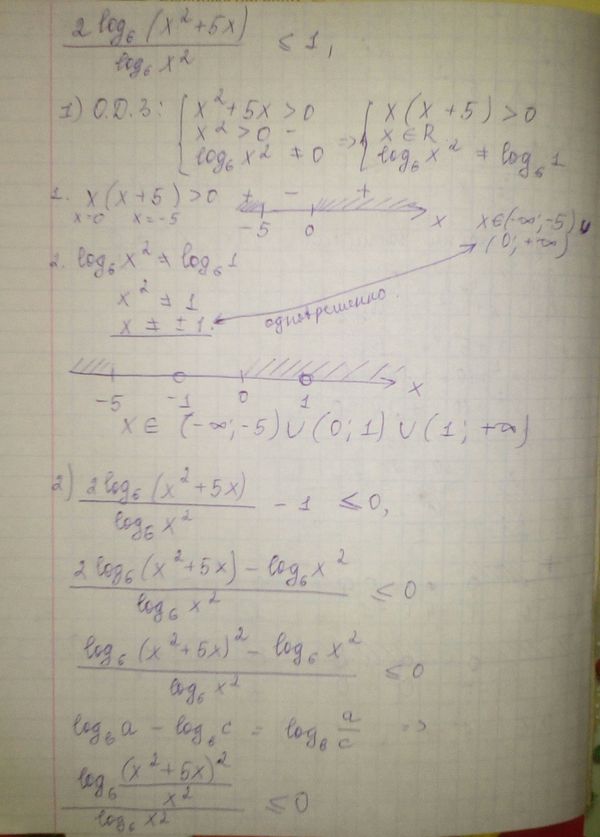 2 log₆ (x² + 5x) / log₆ x² ≤ 1,
1) О.Д.З: { x² + 5x > 0 { x(x + 5) > 0
x² > 0 - => x ∈ R
log₆ x² ≠ 0 log₆ x² ≠ log₆ 1
1. x(x + 5) > 0 + - +
x=0 x=-5 -5 0 x x∈(-∞; -5) ∪
(0; +∞)
2. log₆ x² ≠ log₆ 1
x² ≠ 1
x ≠ ±1. одновременно.
-5 -1 0 1 x
x ∈ (-∞; -5) ∪ (0; 1) ∪ (1; +∞)
2) 2 log₆ (x² + 5x) / log₆ x² - 1 ≤ 0,
2 log₆ (x² + 5x) - log₆ x² / log₆ x² ≤ 0
log₆ (x² + 5x)² - log₆ x² / log₆ x² ≤ 0
log₆ a - log₆ c = log₆ a/c =>
log₆ (x² + 5x)² / x² / log₆ x² ≤ 0